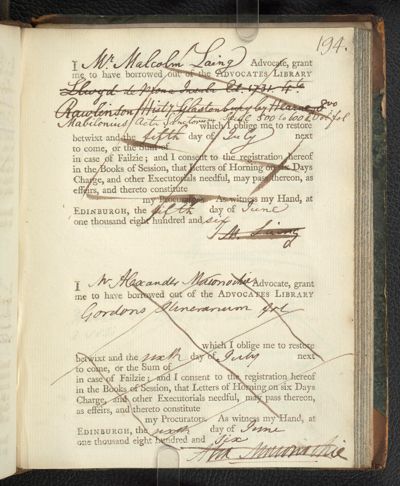 194.
I Mr. Malcolm Laing Advocate, grant
me to have borrowed out of the ADVOCATES LIBRARY
Llwyd de Mona Insula Ed. 1731. 4to
Rawlinson's Hist. of Glastonbury by Hearne 8vo
Mabillonius Acta Sanctorum 500 to 600 fol
which I oblige me to restore
betwixt and the fifth day of July next
to come, or the Sum of
in case of Failzie; and I consent to the registration hereof
in the Books of Session, that Letters of Horning on six Days
Charge, and other Executorials needful, may pass thereon, as
effeirs, and thereto constitute
my Procurators. As witness my Hand, at
EDINBURGH, the fifth day of June
one thousand eight hundred and six
M. Laing
I Mr. Alexander Maconochie Advocate, grant
me to have borrowed out of the ADVOCATES LIBRARY
Gordons Itinerarium fol
which I oblige me to restore
betwixt and the sixth day of July next
to come, or the Sum of
in case of Failzie; and I consent to the registration hereof
in the Books of Session, that Letters of Horning on six Days
Charge, and other Executorials needful, may pass thereon, as
effeirs, and thereto constitute
my Procurators. As witness my Hand, at
EDINBURGH, the sixth day of June
one thousand eight hundred and six
Alex Maconochie